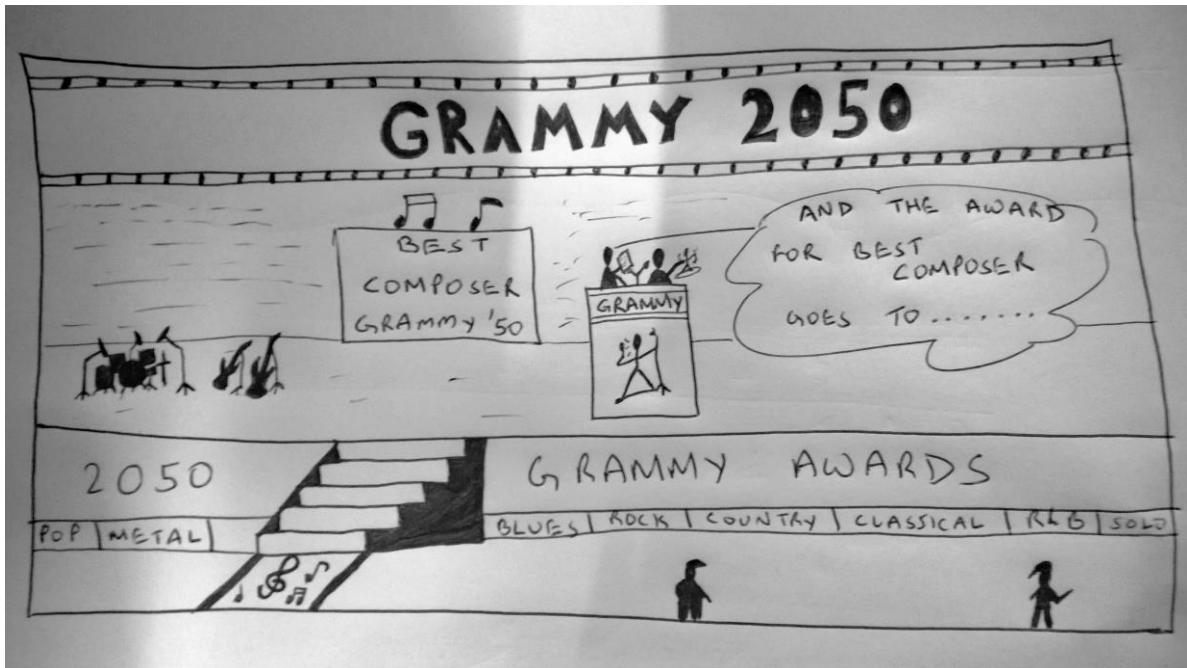 GRAMMY 2050
BEST
COMPOSER
GRAMMY '50
GRAMMY
AND THE AWARD
FOR BEST
COMPOSER
GOES TO........
2050
GRAMMY AWARDS
POP METAL
BLUES ROCK COUNTRY CLASSICAL R&B SOLO